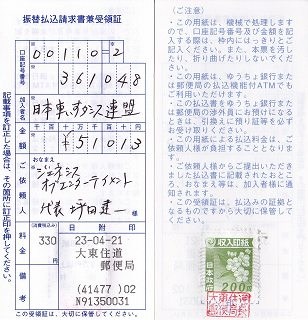 振替払込請求書兼受領証
口座記号番号
00110-2
361048
加入者名
日本車いすダンス連盟
金額
千百十万千百十円
¥51013
ご依頼人
おなまえ
ジェネシス
オブエンターテイメント
代表 坪田建一 様
料金
330
円
日附印
23-04-21
大東住道
郵便局
備考
(41477)02
N91350031
記載事項を訂正した場合は、その箇所に訂正印を押してください。
(ご注意)
・この用紙は、機械で処理しますので、口座記号番号及び金額を記入する際は、枠内にはっきりとご記入ください。また、本票を汚したり、折り曲げたりしないでください。
・この用紙は、ゆうちょ銀行または郵便局の払込機能付ATMでもご利用いただけます。
・この払込書をゆうちょ銀行または郵便局の渉外員にお預けになるときは、引換えに預り証を必ずお受け取りください。
・この用紙による払込料金は、ご依頼人様が負担することとなります。
・ご依頼人様からご提出いただきました払込書に記載されたおところ、おなまえ等は、加入者様に通知されます。
・この受領証は、払込みの証拠となるものですから大切に保管してください。
収入印紙
200
日本政府